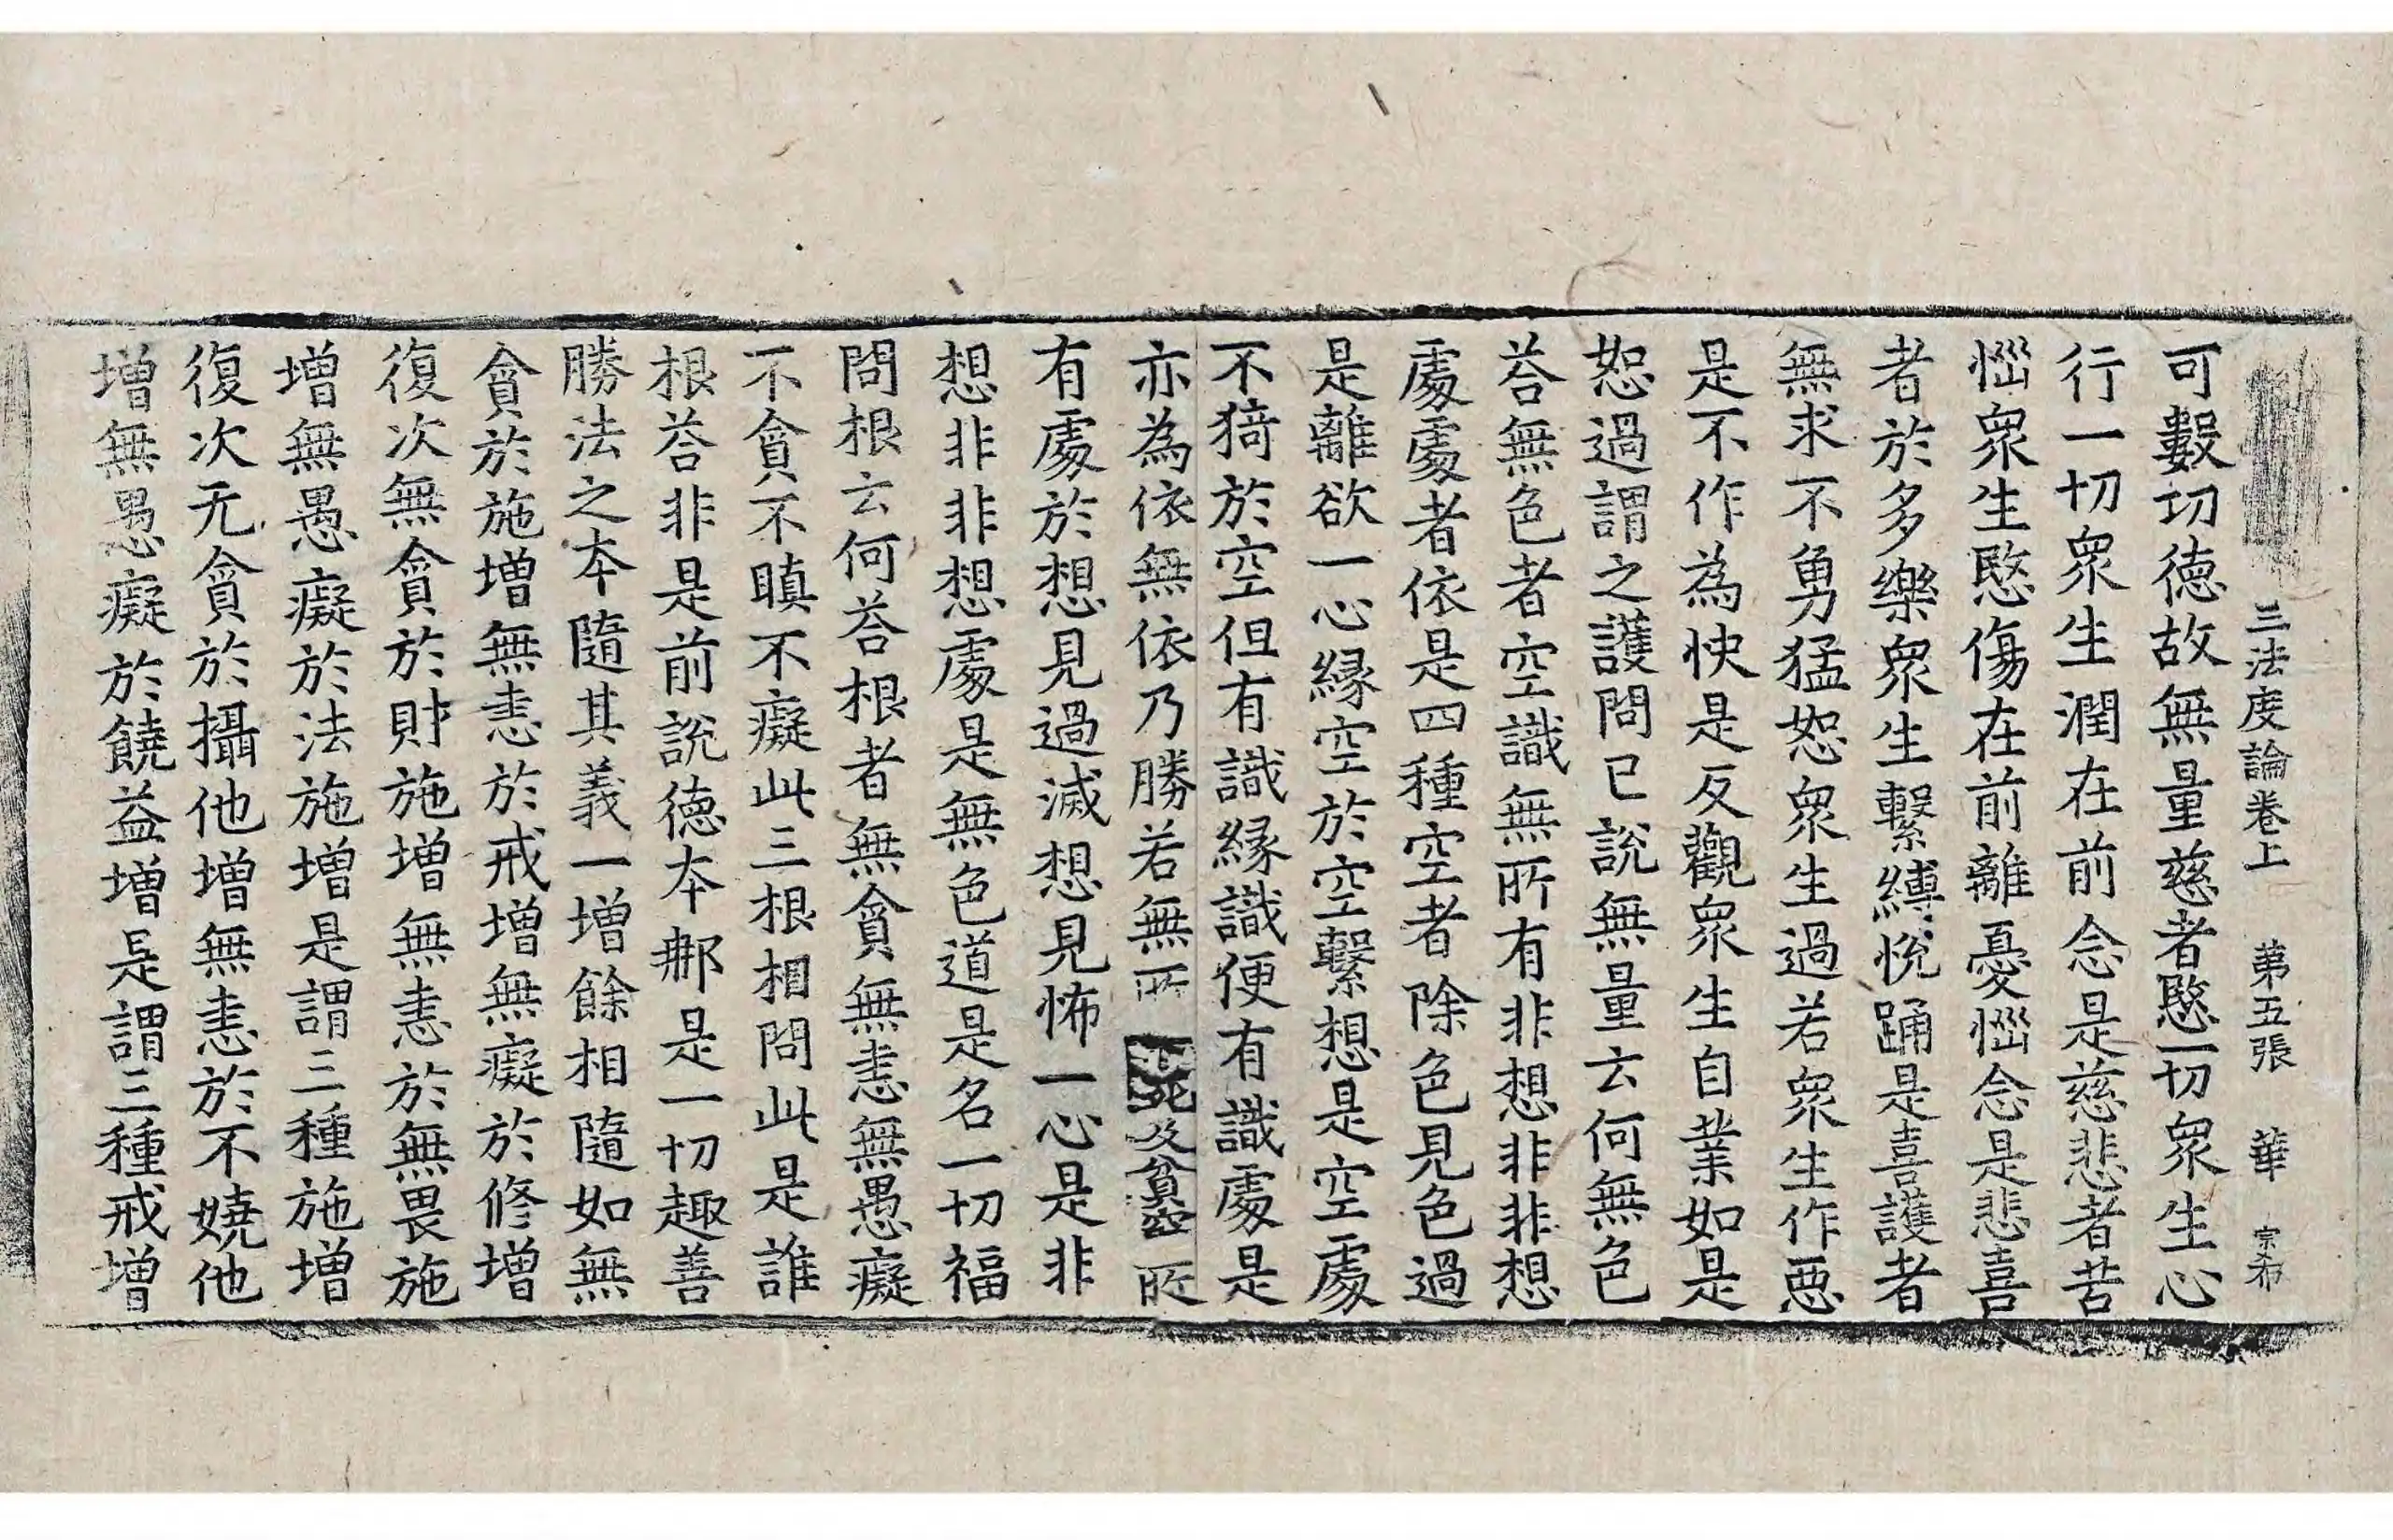 三法度論卷上　第五張　華　宗布
可數切德故無量慈者愍一切眾生心
行一切眾生潤在前念是慈悲者苦
惱眾生愍傷在前離憂惱念是悲喜
者於多樂眾生繫縛悅踊是喜護者
無求不勇猛恕眾生過若眾生作惡
是不作為快是反觀眾生自業如是
恕過謂之護問已說無量云何無色
荅無色者空識無所有非想非非想
處處者依是四種空者除色見色過
是離欲一心緣空於空繫想是空處
不猗於空但有識緣識便有識處是
亦為依無依乃勝若無所
有處於想見過滅想見怖一心是非
想非非想處是無色道是名一切福
問根云何荅根者無貪無恚無愚癡
不貪不瞋不癡此三根相問此是誰
根荅非是前說德本郍是一切趣善
勝法之本隨其義一增餘相隨如無
貪於施增無恚於戒增無癡於修增
復次無貪於財施增無恚於無畏施
增無愚癡於法施增是謂三種施增
復次无貪於攝他增無恚於不嬈他
增無愚癡於饒益增是謂三種戒增